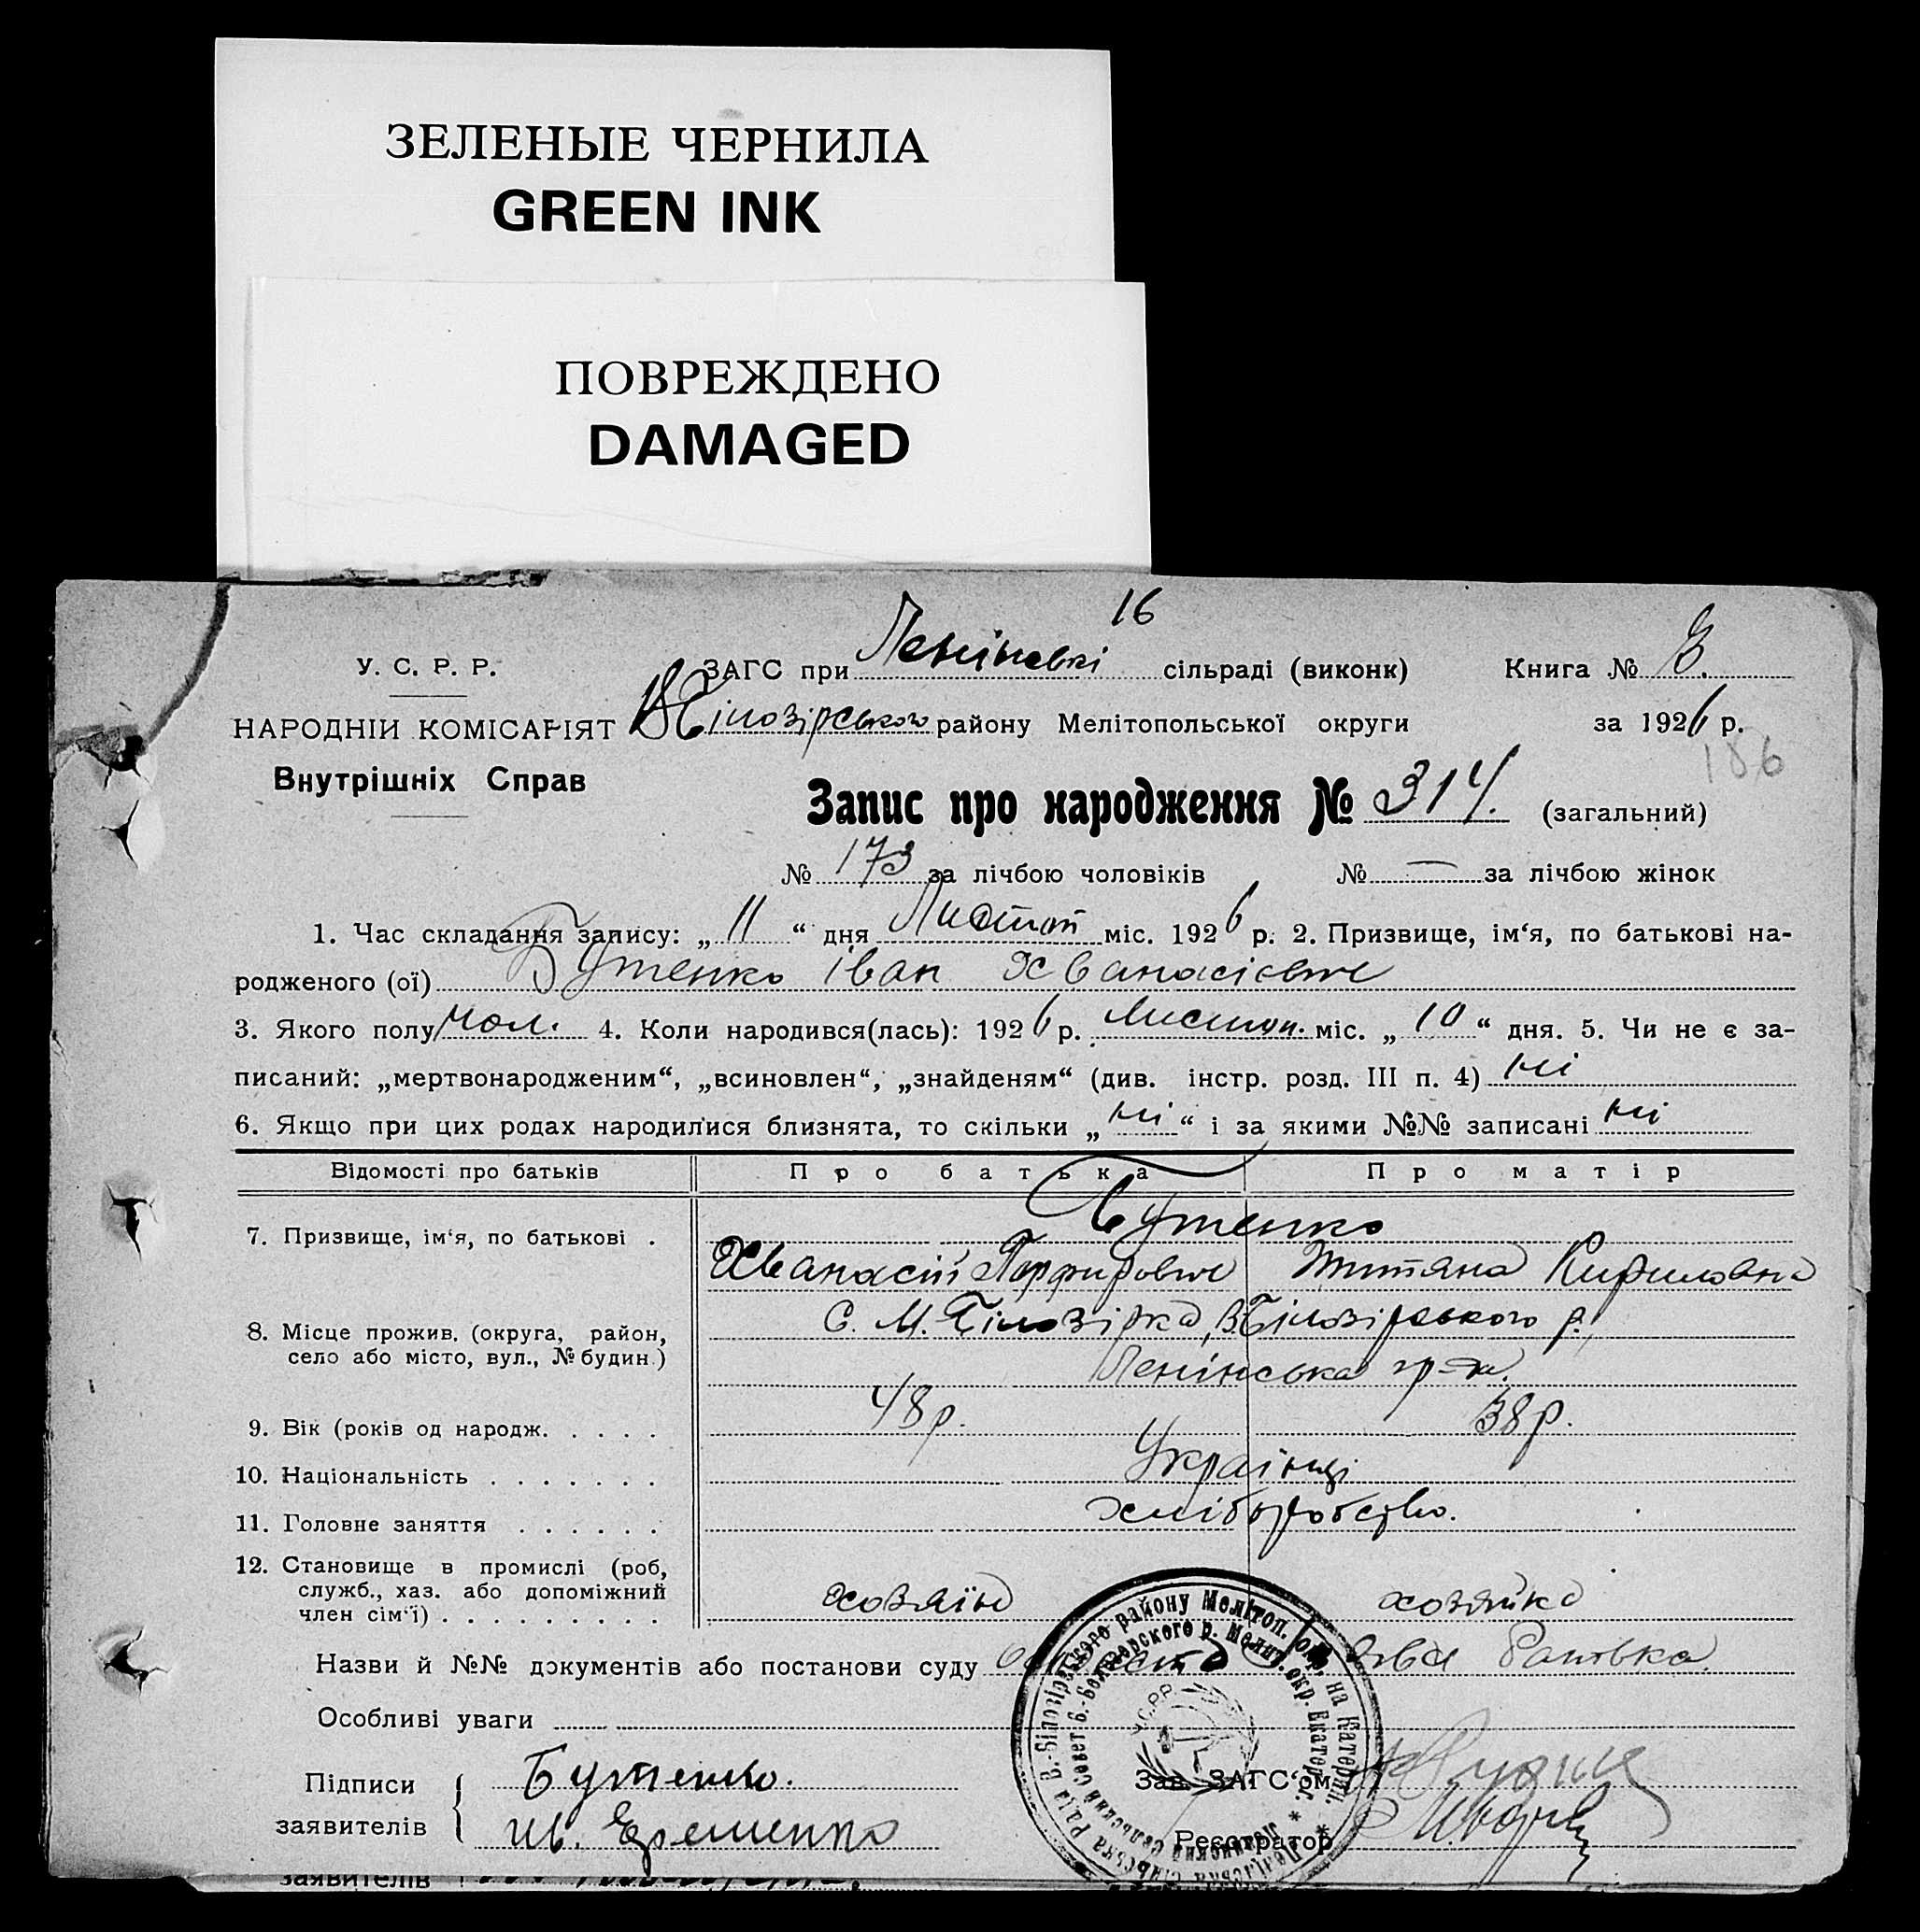 ЗЕЛЕНЫЕ ЧЕРНИЛА
GREEN INK
ПОВРЕЖДЕНО
DAMAGED
16
У. С. Р. Р. ЗАГС при Ленінські сільраді (виконк) Книга № 3.
НАРОДНІЙ КОМІСАРІЯТ В Білозірського району Мелітопольської округи за 1926 р.
186
Внутрішніх Справ
Запис про народження № 314. (загальний)
№ 173 за лічбою чоловіків № — за лічбою жінок
1. Час складання запису: „ 11 “ дня Листоп міс. 1926 р. 2. Призвище, ім‘я, по батькові на-
родженого (ої) Бутенко Іван Хванасієвич
3. Якого полу чол. 4. Коли народився(лась): 1926 р. Листоп. міс. „ 10 “ дня. 5. Чи не є за-
писаний: „мертвонародженим“, „всиновлен“, „знайденям“ (див. інстр. розд. III п. 4) ні
6. Якщо при цих родах народилися близнята, то скільки „ ні “ і за якими №№ записані ні
Відомості про батьків Про батька Про матір
7. Призвище, ім‘я, по батькові . Бутенко
Хванасій Порфирович Титяна Кириловна
С. М. Білозірка, В Білозірського р.,
8. Місце прожив. (округа, район,
село або місто, вул., № будин.)
Ленінська гр-да.
9. Вік (років од народж. . . . . 48 р. 38 р.
10. Національність . . . . . . . Українці
11. Головне заняття . . . . . . хліборобство.
12. Становище в промислі (роб,
служб., хаз. або допоміжний
член сім‘ї) . . . . . . . . . хозяїн хозяйка
Назви й №№ документів або постанови суду
Особливі уваги
Підписи
заявителів
Бутенко.
Ив. Єременко
Зав. ЗАГС‘ом
Реєстратор
заявителів